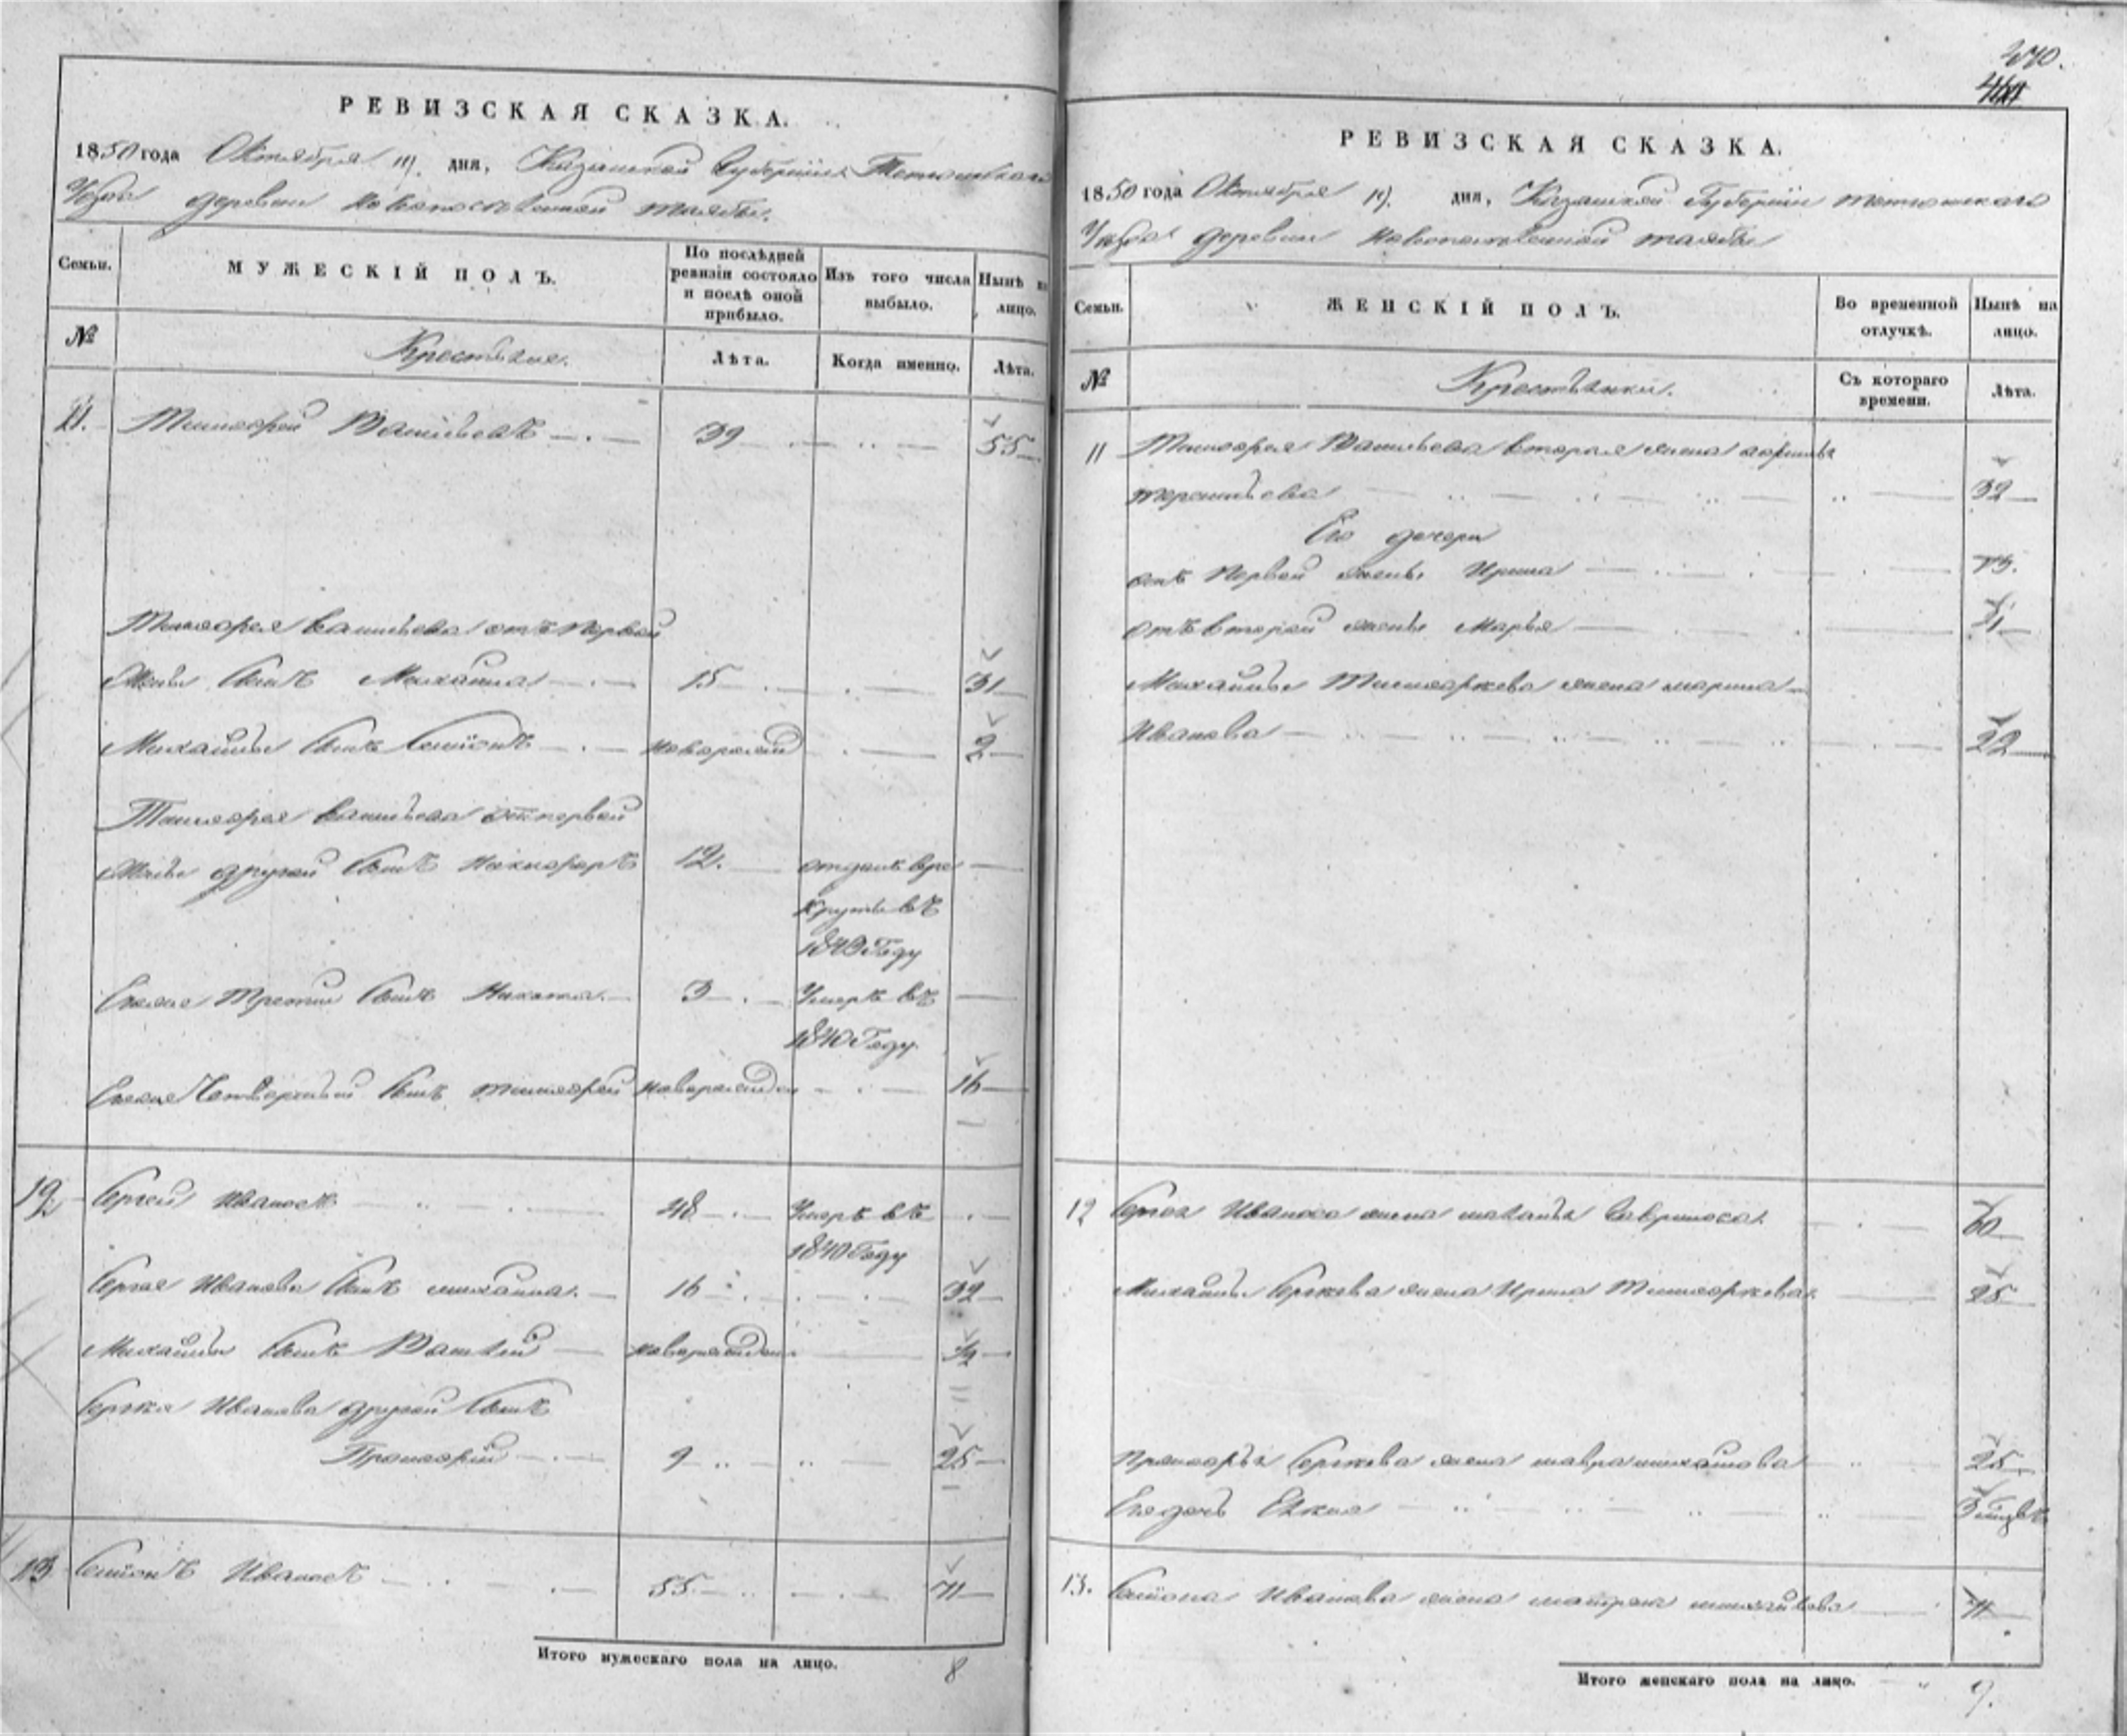 РЕВИЗСКАЯ СКАЗКА.
1850 года Октября 19. дня, Казанской Губернии Тетюшскаго
Уезда деревни Новопоселенной таябы.
Семьи.
МУЖЕСКІЙ ПОЛЪ.
По послѣдней ревизіи состояло и послѣ оной прибыло.
Изъ того числа выбыло.
Нынѣ на лицо.
№
Крестьяне.
Лѣта.
Когда именно.
Лѣта.
11. Тимофей Васильевъ 39 55
Тимофея Васильева отъ первой
жены сынъ Михайла 15 31
Михайлы сынъ Семіонъ новорожд 2
Тимофея Васильева от первой
жены другой сынъ Никифоръ 12. отданъ вре
круты въ
1840 Году
Егоже третий сынъ Никита 3 Умеръ въ
1840 Году
Егоже Четвертый сынъ тимофей новорожден 16
12 Сергей Ивановъ 48 Умеръ въ
1840 Году
Сергея Иванова сынъ михайла 16 32
Михайлы сынъ Василій новорожден 1/2
Сергея Иванова другой сынъ
Прокофій 9 25
13 Семіонъ Ивановъ 55 71
Итого мужескаго пола на лицо. 8
470.
РЕВИЗСКАЯ СКАЗКА.
1850 года Октября 19. дня, Казанской Губернии тетюшскаго
Уезда деревни Новопоселенной таябы
Семьи.
ЖЕНСКІЙ ПОЛЪ.
Во временной отлучкѣ.
Нынѣ на лицо.
№
Крестьянки.
Съ котораго времени.
Лѣта.
11 Тимофея Васильева вторая жена
терентьева 32
Его дочери
отъ Первой жены Ирина 13.
отъ второй жены Марья 11
Михайлы Тимофеева жена марина
Иванова 22
12 Сергея Иванова жена Гаврилова 60
Михайлы Сергеева жена Ирина Тимофеева 25
Прокофья Сергеева жена михайлова 25
Егодочь
13. Семіона Иванова жена матрена михайлова 71
Итого женскаго пола на лицо. 9.